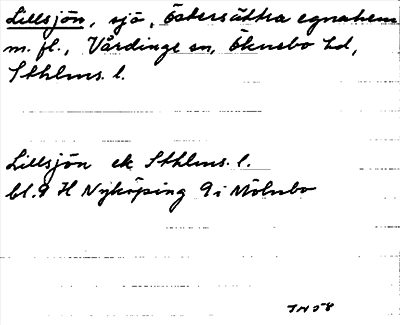 Lillsjön, sjö, Östersättra egnahem
m. fl., Vårdinge sn, Öknebo hd,
Sthlms. l.
Lillsjön ek Sthlms. l.
bl. 9 H Nyköping 9 i Mölnbo
IN58